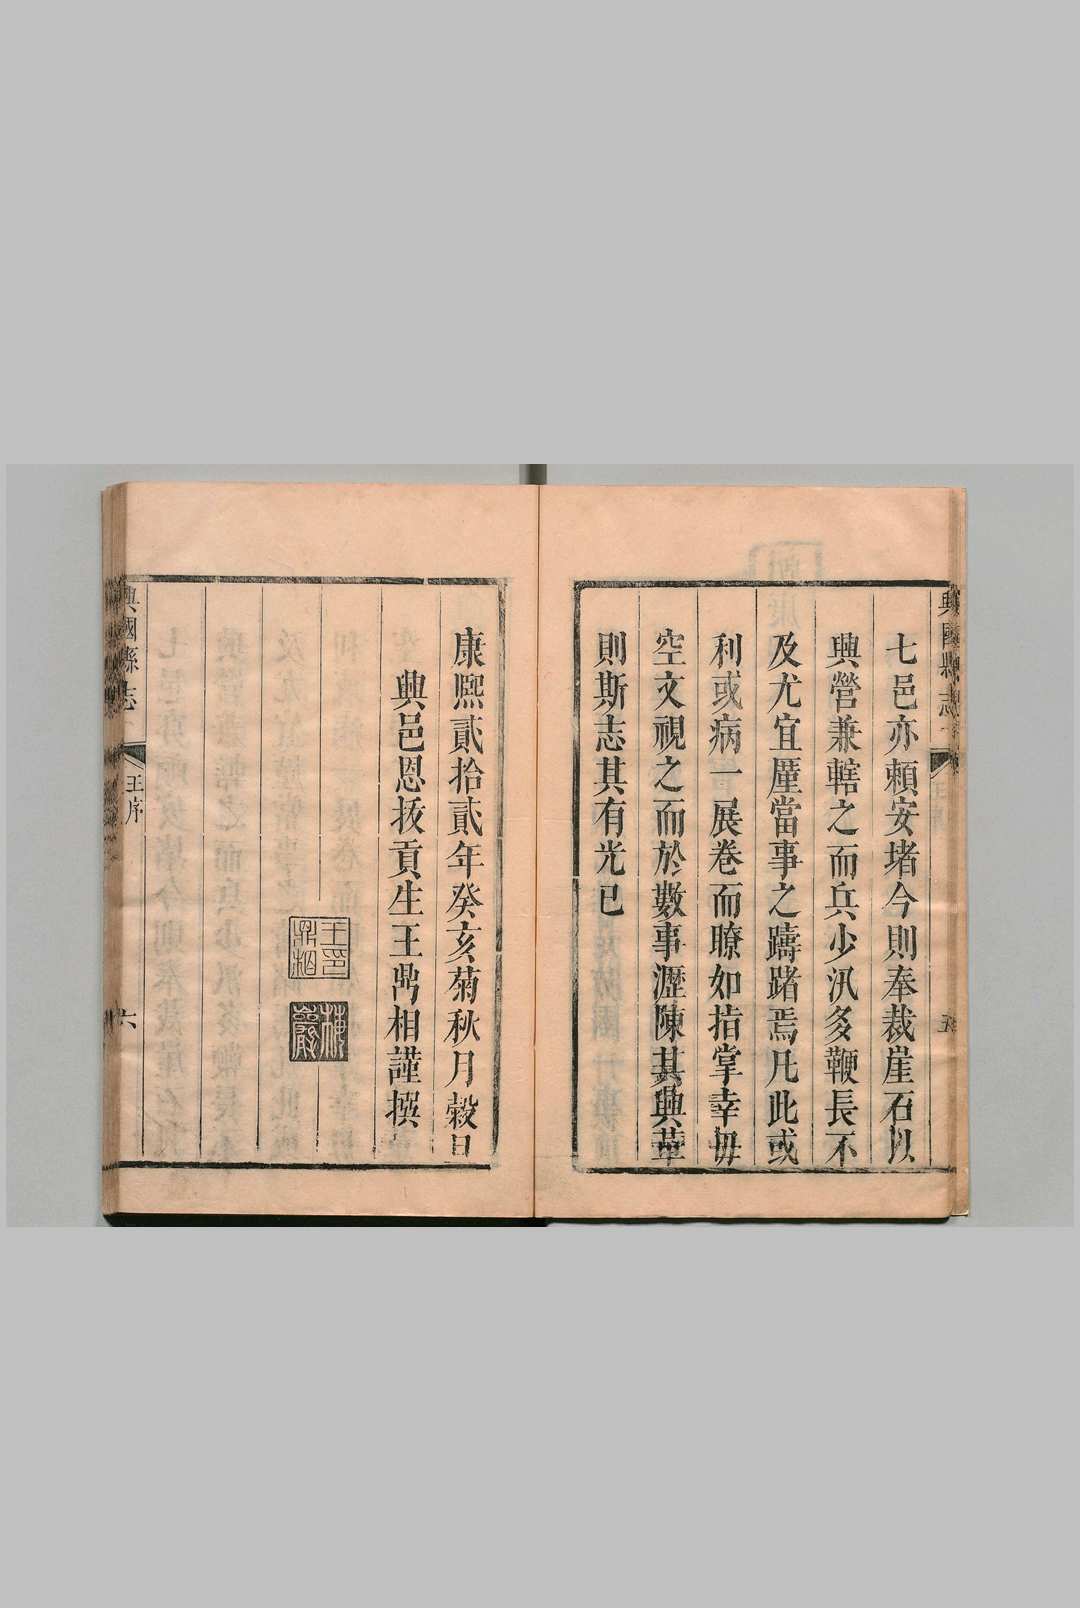 七邑亦賴安堵今則奉裁崖石以
興營兼轄之而兵少汛多鞭長不
及尤宜厪當事之躊躇焉凡此或
利或病一展卷而瞭如指掌幸毋
空文視之而於數事瀝陳其興革
則斯志其有光已
興國縣志
五
康熙貳拾貳年癸亥菊秋月穀旦
興邑恩拔貢生王鼎相謹撰
王印
鼎相
興國縣志
王序
六